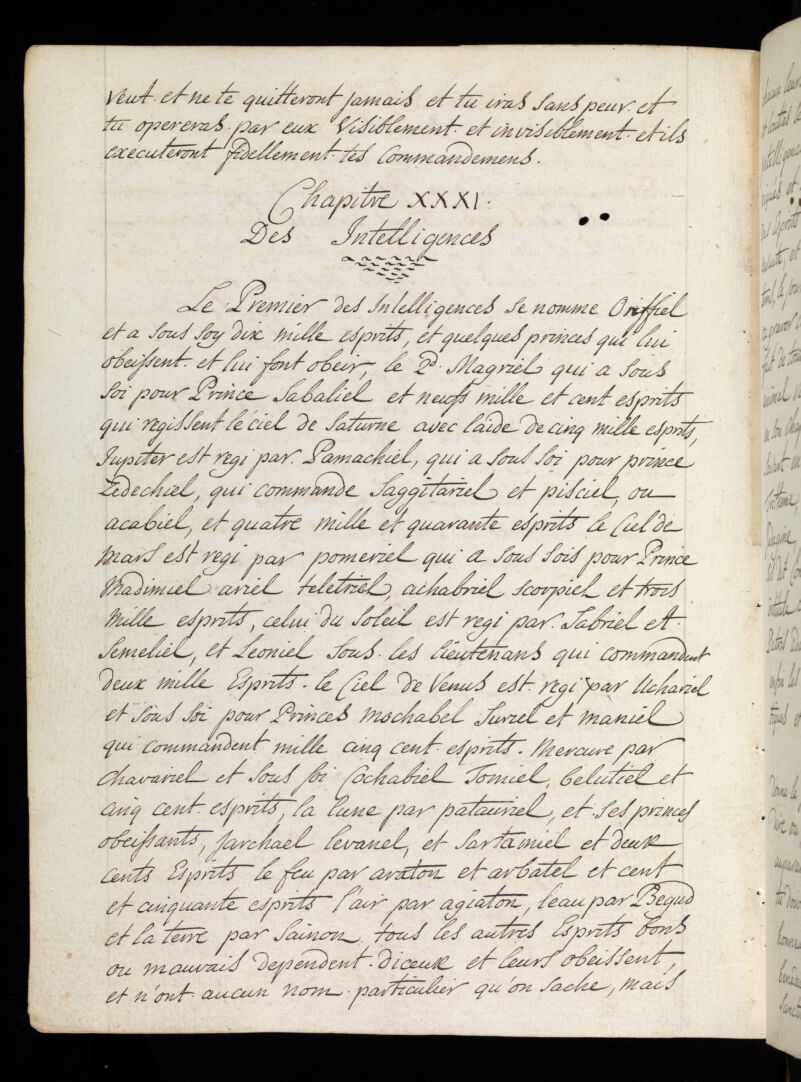 veut et ne te quitteront jamais et tu iras sans peur et
tu opereras par eux Visiblement et invisiblement et ils
executeront fidellement tes Commandemens.
Chapitre XXXI.
Des Intelligences
Le Premier des Intelligences se nomme Oriffiel
et a sous soy dix mille esprits, et quelques princes qui lui
obeissent et lui font obeir, le 2d. Magriel qui a sous
soi pour Prince Sabaliel et neufs mille et cent esprits
qui regissent le ciel de Saturne avec l'aide de cinq mille esprits,
Jupiter est regi par Pamachiel, qui a sous soi pour prince
Zedechiel, qui commande Saggitariel et pisciel, ou
acabiel, et quatre mille et quarante esprits le Ciel de
mars est regi par pomeriel qui a sous sois pour Prince
Madimiel ariel teletriel, achabriel scorpiel et trois
mille esprits, celui du Soleil est regi par Sabriel et
Semeliel, et Leoniel sous les lieutenans qui commandent
deux mille Esprits. le Ciel de Venus est regi par Uchariel
et sous soi pour Princes mochabel Turiel et maniel
qui commandent mille cinq cent esprits. Mercure par
chavariel et sous soi Cochabiel Tomiel, belutiel et
cinq cent esprits, la lune par patauriel, et ses princes
obeissants, Jarchael levanel, et Sartamiel et deux
cents Esprits le feu par araton et arbatel et cent
et cinquante esprits l'air par agiaton, leau par Begud
et la terre par Sainon, tous les autres Esprits bons
ou mauvais dependent diceux et leurs obeissent,
et n'ont aucun nom particulier qu'on sache, mais